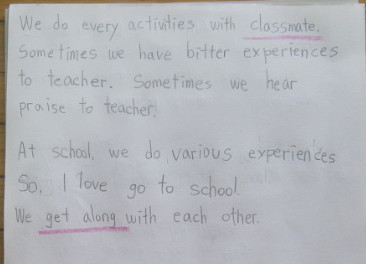 We do every activities with classmate.
Sometimes we have bitter experiences
to teacher. Sometimes we hear
praise to teacher.
At school, we do various experiences
So, I love go to school.
We get along with each other.